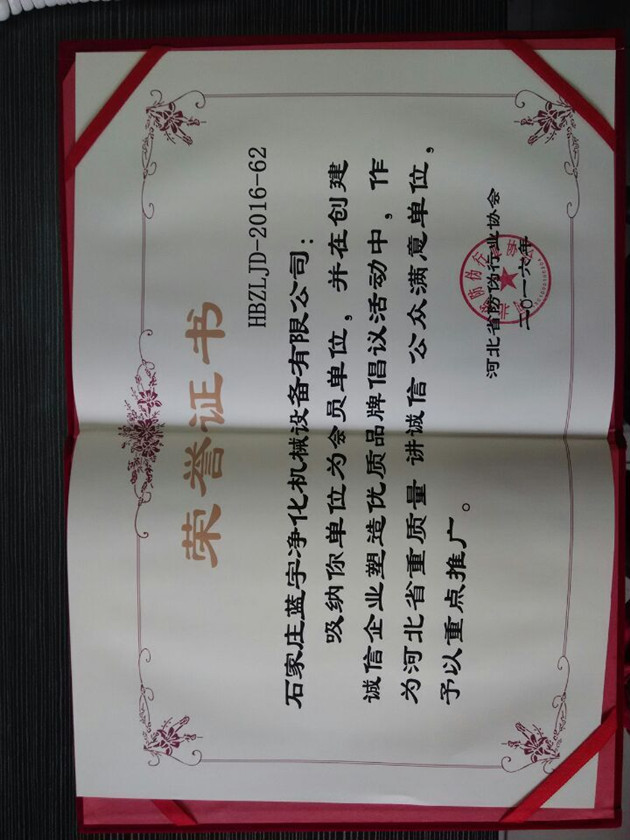 荣誉证书
HBZLJD-2016-62
石家庄蓝宇净化机械设备有限公司：
吸纳你单位为会员单位，并在创建
诚信企业塑造优质品牌倡议活动中，作
为河北省重质量 讲诚信 公众满意单位，
予以重点推广。
河北省防伪行业协会
二〇一六年